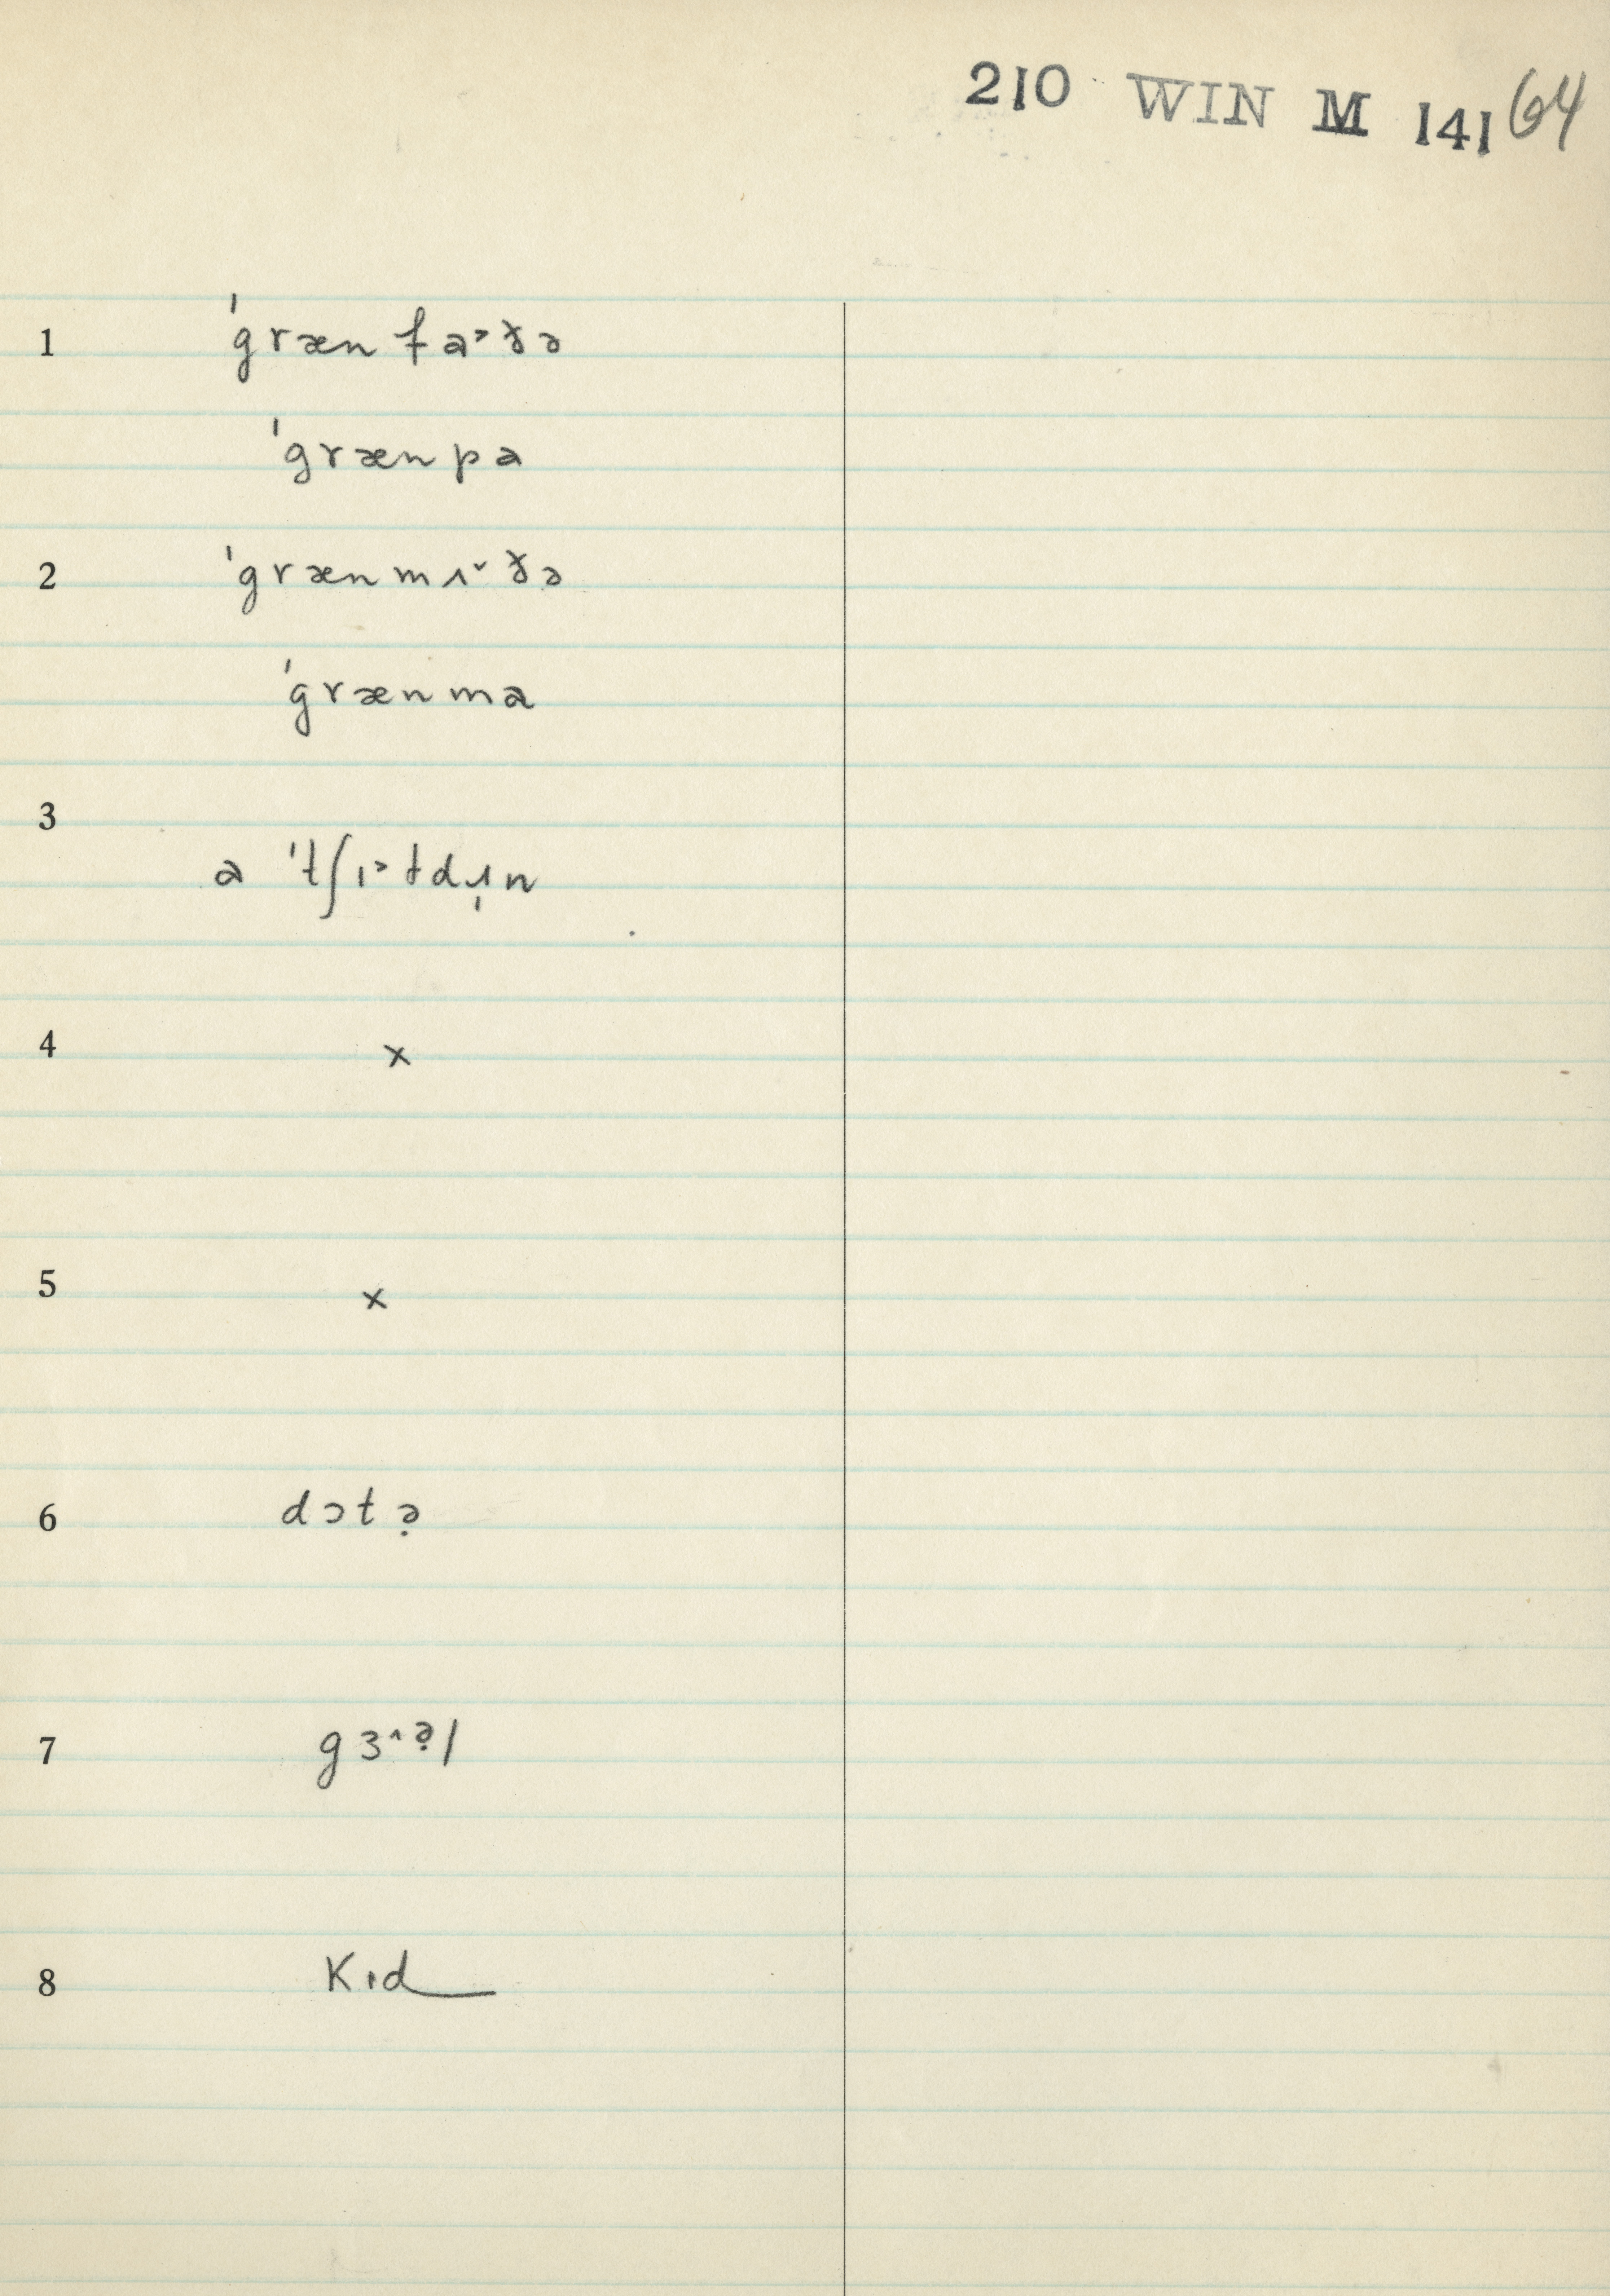 210 WIN M 14164
1 ˈgræn fa˃ðə
ˈgræn pa
2 ˈgræn mʌ˅ðə
ˈgræn ma
3
a ˈtʃɪ˃ldɹ̩n
4 x
5 x
6 dɔtə̣
7 gɜ˄ə̣l
8 Kɪd